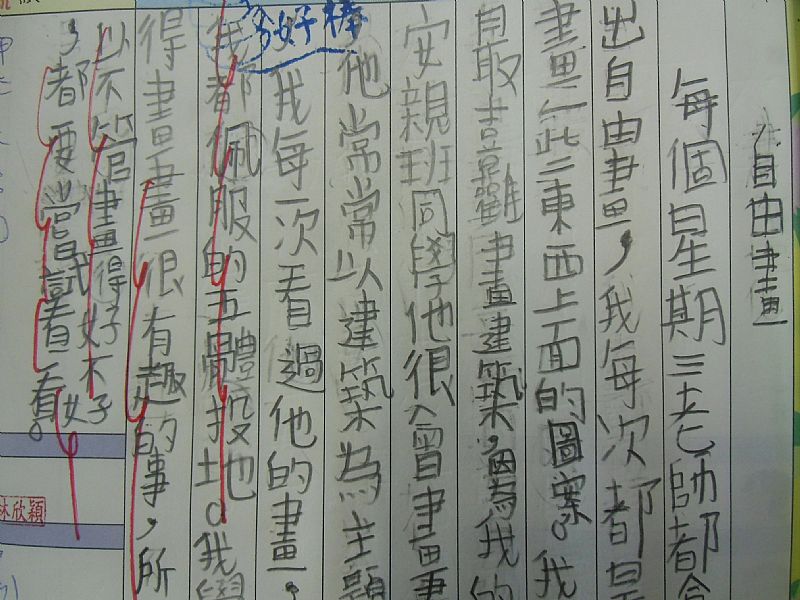 自由畫
每個星期三老師都會
出自由畫,我每次都是
畫一些東西上面的圖案。我
最喜歡畫建築,因為我的
安親班同學他很會畫畫
他常常以建築為主題
我每一次看過他的畫,
我都佩服的五體投地。我覺
得畫畫很有趣的事,所
以不管畫得好不好
,都要嘗試看看。
好棒
林欣穎